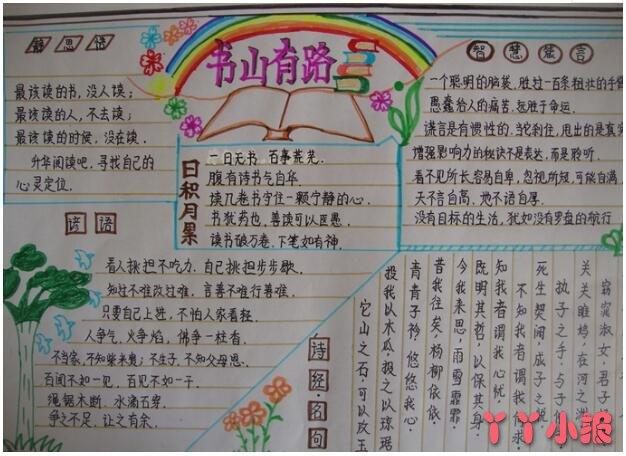 静思语
最该读的书,没人读;
最该读的人,不去读;
最该读的时候,没在读.
升华阅读吧,寻找自己的
心灵定位.
书山有路
日积月累
一日无书 百事荒芜.
腹有诗书气自华
读几卷书守住一颗宁静的心.
书犹药也,善读可以医愚.
读书破万卷,下笔如有神.
智慧箴言
一个聪明的脑袋,胜过一百条粗壮的手
愚蠢给人的痛苦,远胜于命运.
谎言是有惯性的,当它刹住,甩出的是真实
增强影响力的秘诀不是表达,而是聆听.
看不见所长,容易自卑,忽视所短,可能自满
天不言自高,地不语自厚.
没有目标的生活,犹如没有罗盘的航行
谚语
看人挑担不吃力,自己挑担步步歇.
知过不难改过难,言善不难行善难.
只要自己上进,不怕人家看轻.
人争气,火争焰,佛争一柱香.
不当家,不知柴米贵;不生子,不知父母恩.
百闻不如一见,百见不如一干.
绳锯木断,水滴石穿.
争之不足,让之有余.
诗经·名句
窈窕淑女,君子
关关雎鸠,在河之洲
执子之手,与子
死生契阔,成子之说
不知我者谓我何求.
知我者谓我心忧,
既明其哲,以保其身.
今我来思,雨雪霏霏.
昔我往矣,杨柳依依.
青青子衿,悠悠我心.
投我以木瓜,报之以琼琚
它山之石,可以攻玉
丫丫小报